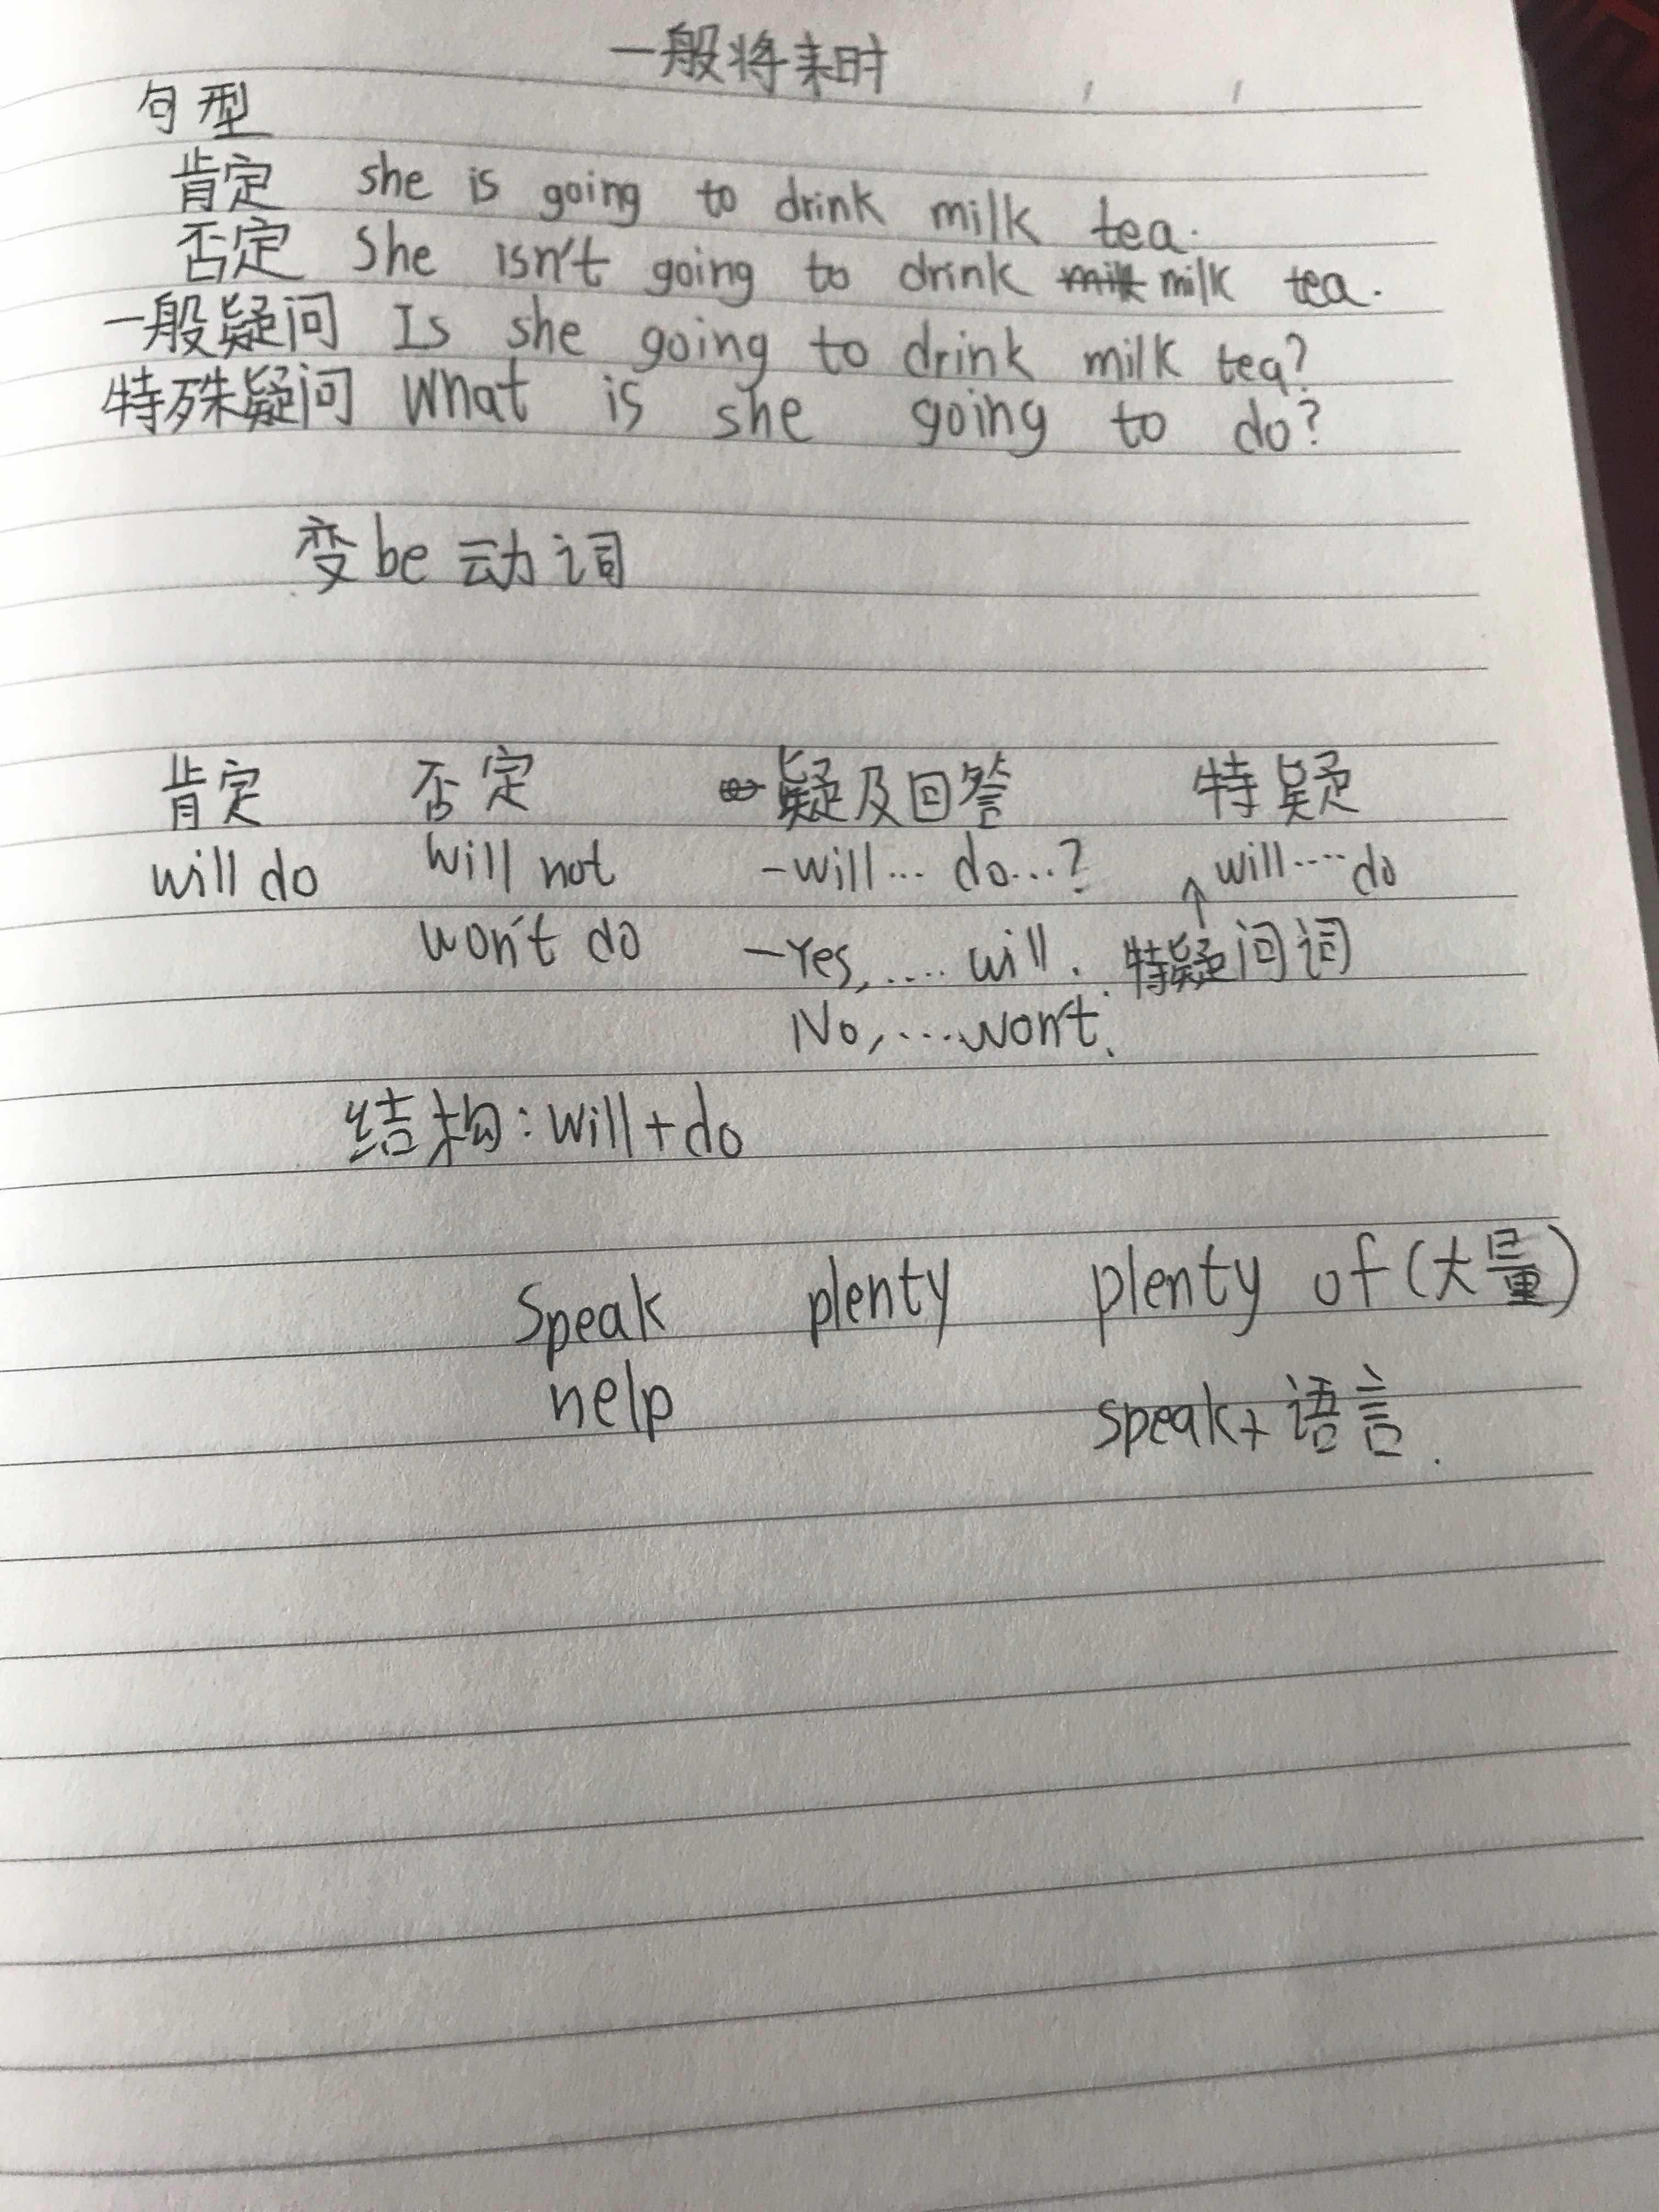 一般将来时
句型
肯定 she is going to drink milk tea.
否定 She isn't going to drink milk milk tea.
一般疑问 Is she going to drink milk tea?
特殊疑问 What is she going to do?
变be动词
肯定 否定 一疑及回答 特疑
will do will not -will... do...? will....do
won't do -Yes,..... will. 特疑问词
No,....won't.
结构:will+do
Speak plenty plenty of(大量)
help speak+语言.